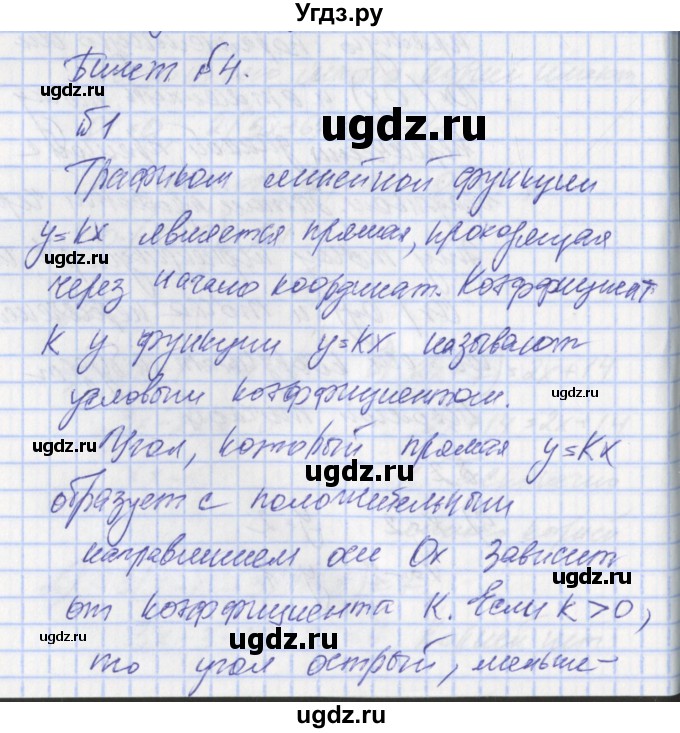 Угдз.ру
Билет №4.
№1
Графиком линейной функции
y=kx является прямая, проходящая
через начало координат. Коэффициент
k у функции y=kx называют
угловым коэффициентом.
Угол, который прямая y=kx
образует с положительным
направлением оси Ox зависит
от коэффициента k. Если k>0,
то угол острый, меньше-
ugdz.ru
ugdz.ru
ugdz.ru
ugdz.ru
ugdz.ru
ugdz.ru
ugdz.ru
ugdz.ru
ugdz.ru
ugdz.ru
ugdz.ru